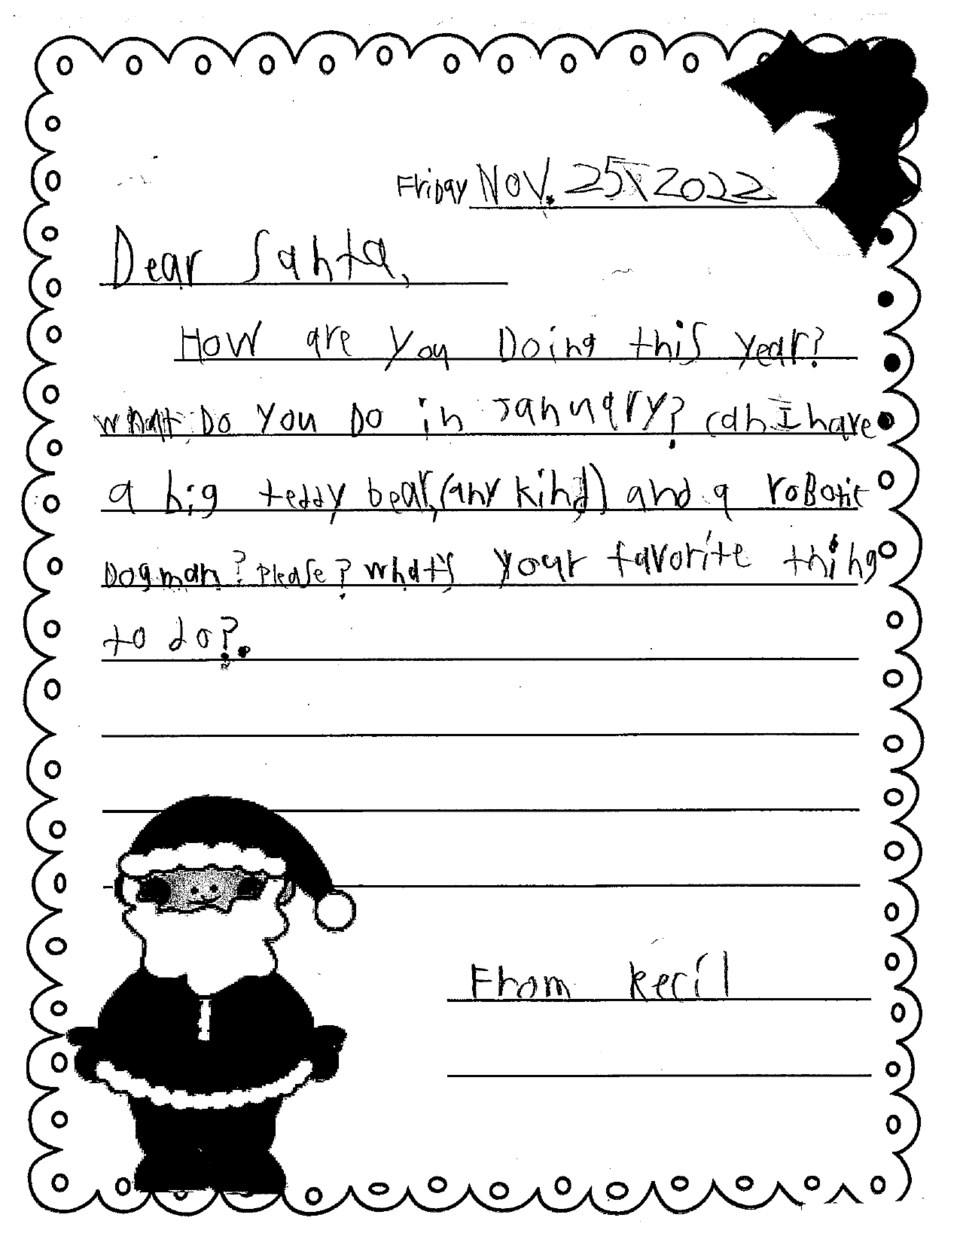 Friday Nov. 25, 2022
Dear Santa,
How are you Doing this year?
what Do you Do in January? Can I have
a big teddy bear, (any kind) and a roBotic
Dogman? Please? what's your favorite thing
to do?.
From Kecil